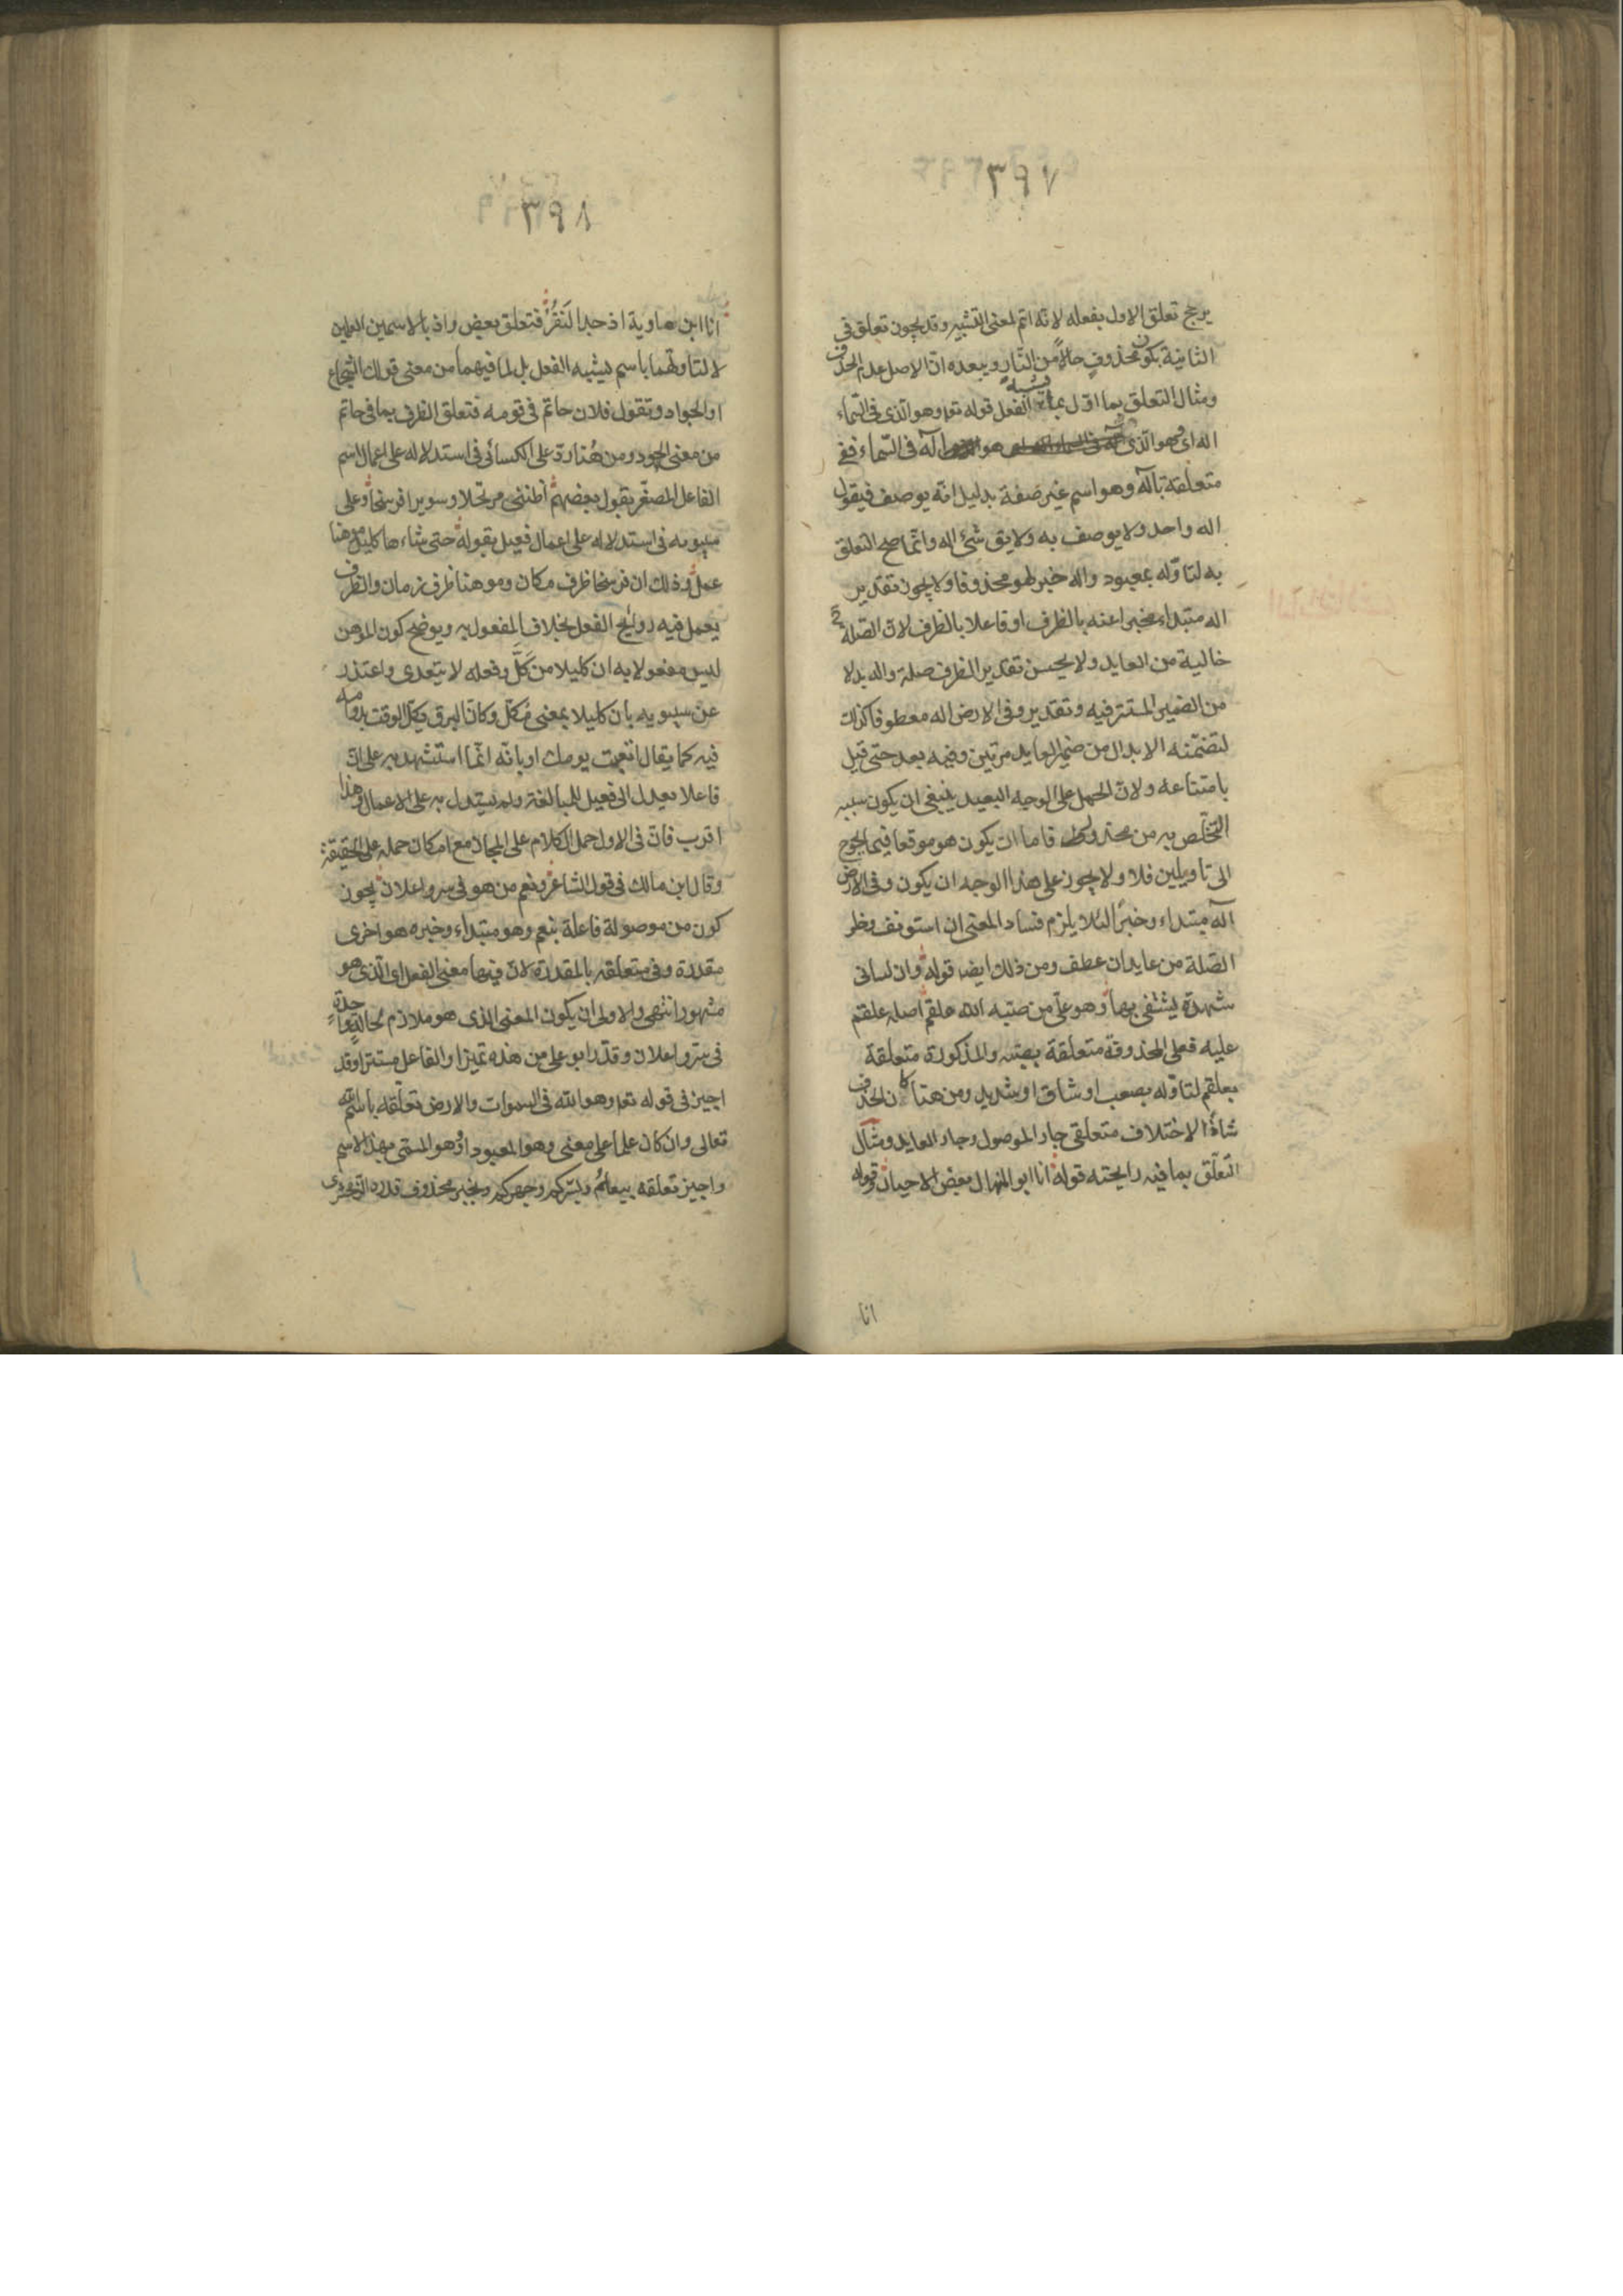 ٣٩٧
يرجح تعلق الاول بفعله لانه اتم لمعنى التشبيه وقد يجوز تعلق فى
الثانية بكون محذوف حالاً من النّار ويبعده انّ الاصل عدم الحذف
ومثال التعلق بما اوّل بما يشبه الفعل قوله تعه وهو الّذى فى السّماء
اله اى وهو الّذى هو اله فى السّماء ففى
متعلقة باله وهو اسم غير صفة بدليل انّه يوصف فيقول
اله واحد ولا يوصف به ولا يق شئ اله وانّما صح التعلق
به لتاوّله بمعبود واله خبر لهو محذوفا ولا يجوز تقدير
اله مبتداء مخبرا عنه بالظرف او فاعلا بالظرف لانّ الصّلة ح
خالية من العايد ولا يحسن تقدير الظرف صلة واله بدلا
من الضمير المستتر فيه وتقدير وفى الارض اله معطوفا كذلك
لتضمّنه الابدال من ضمير العايد مرتين وفيه بعد حتى قيل
بامتناعه ولانّ الحمل على الوجه البعيد ينبغى ان يكون سببه
التخلّص به من محذور فاما ان يكون هو موقعا فيما يحوج
الى تاويلين فلا ولا يجوز على هذا الوجه ان يكون وفى الارض
اله مبتداء وخبرًا لئلا يلزم فساد المعنى ان استونف وخلو
الصّلة من عايد ان عطف ومن ذلك ايضا قوله وان لسانى
شهدة يشتفى بها وهو علىّ من صبّه الله علقم اصله علقم
عليه فعلى المحذوفة متعلقة بصبّه والمذكورة متعلقة
بعلقم لتاوّله بصعب او شاق او شديد ومن هنا كان الحذف
شاذًّا لاختلاف متعلقى جار الموصول وجار العايد ومثال
التعلّق بما فيه رايحته قوله انا ابو المنهال بعض الاحيان وقوله
انا
٣٩٨
انا ابن ماوية اذ جد النَقُرْ فتعلق بعض واذ بالاسمين العلمين
لا لتاولهما باسم يشبه الفعل بل لما فيهما من معنى قولك الشجاع
او الجواد وتقول فلان حاتم فى قومه فتعلق الظرف بما فى حاتم
من معنى الجود ومن هُنا ردّ على الكسائى فى استدلاله على اعمال اسم
الفاعل المصغّر بقول بعضهم اظنّنى مرتحلا وسويرا فرسخا وعلى
سيبويه فى استدلاله على اعمال فعيل بقوله حتى شاءها كليل موهنا
عمل وذلك ان فرسخا ظرف مكان وموهنا ظرف زمان والظرف
يعمل فيه روايح الفعل بخلاف المفعول به ويوضح كون الموهن
ليس مفعولا به ان كليلا من كَلَّ وفعله لا يتعدى واعتذر
عن سيبويه بان كليلا بمعنى مُكلّ وكان البرق يكلّ الوقت بدوامه
فيه كما يقال اتعبت يومك او بانّه انّما استشهد به على انّ
فاعلا يعدل الى فعيل للمبالغة ولم يستدل به على الاعمال وهذا
اقرب فانّ فى الاول حمل الكلام على المجاز مع امكان حمله على الحقيقة
وقال ابن مالك فى قول الشاعر ونعم من هو فى سرّ واعلان يجوز
كون من موصولة فاعلة بنعم وهو مبتداء وخبره هو اخرى
مقدرة وفى متعلقه بالمقدرة لانّ فيها معنى الفعل اى الّذى هو
مشهور انتهى والاولى ان يكون المعنى الذى هو ملازم لحالة واحدة
فى سرّ واعلان وقدّر ابو على من هذه تميزا والفاعل مستترا وقد
اجيز فى قوله تعه وهو الله فى السموات والارض تعلّقه باسم الله
تعالى وان كان علما على معنى وهو المعبود او وهو المسمّى بهذا الاسم
واجيز تعلقه بيعلمُ وبسرّكم وجهركم وبخبر محذوف قدره الزمخشرى